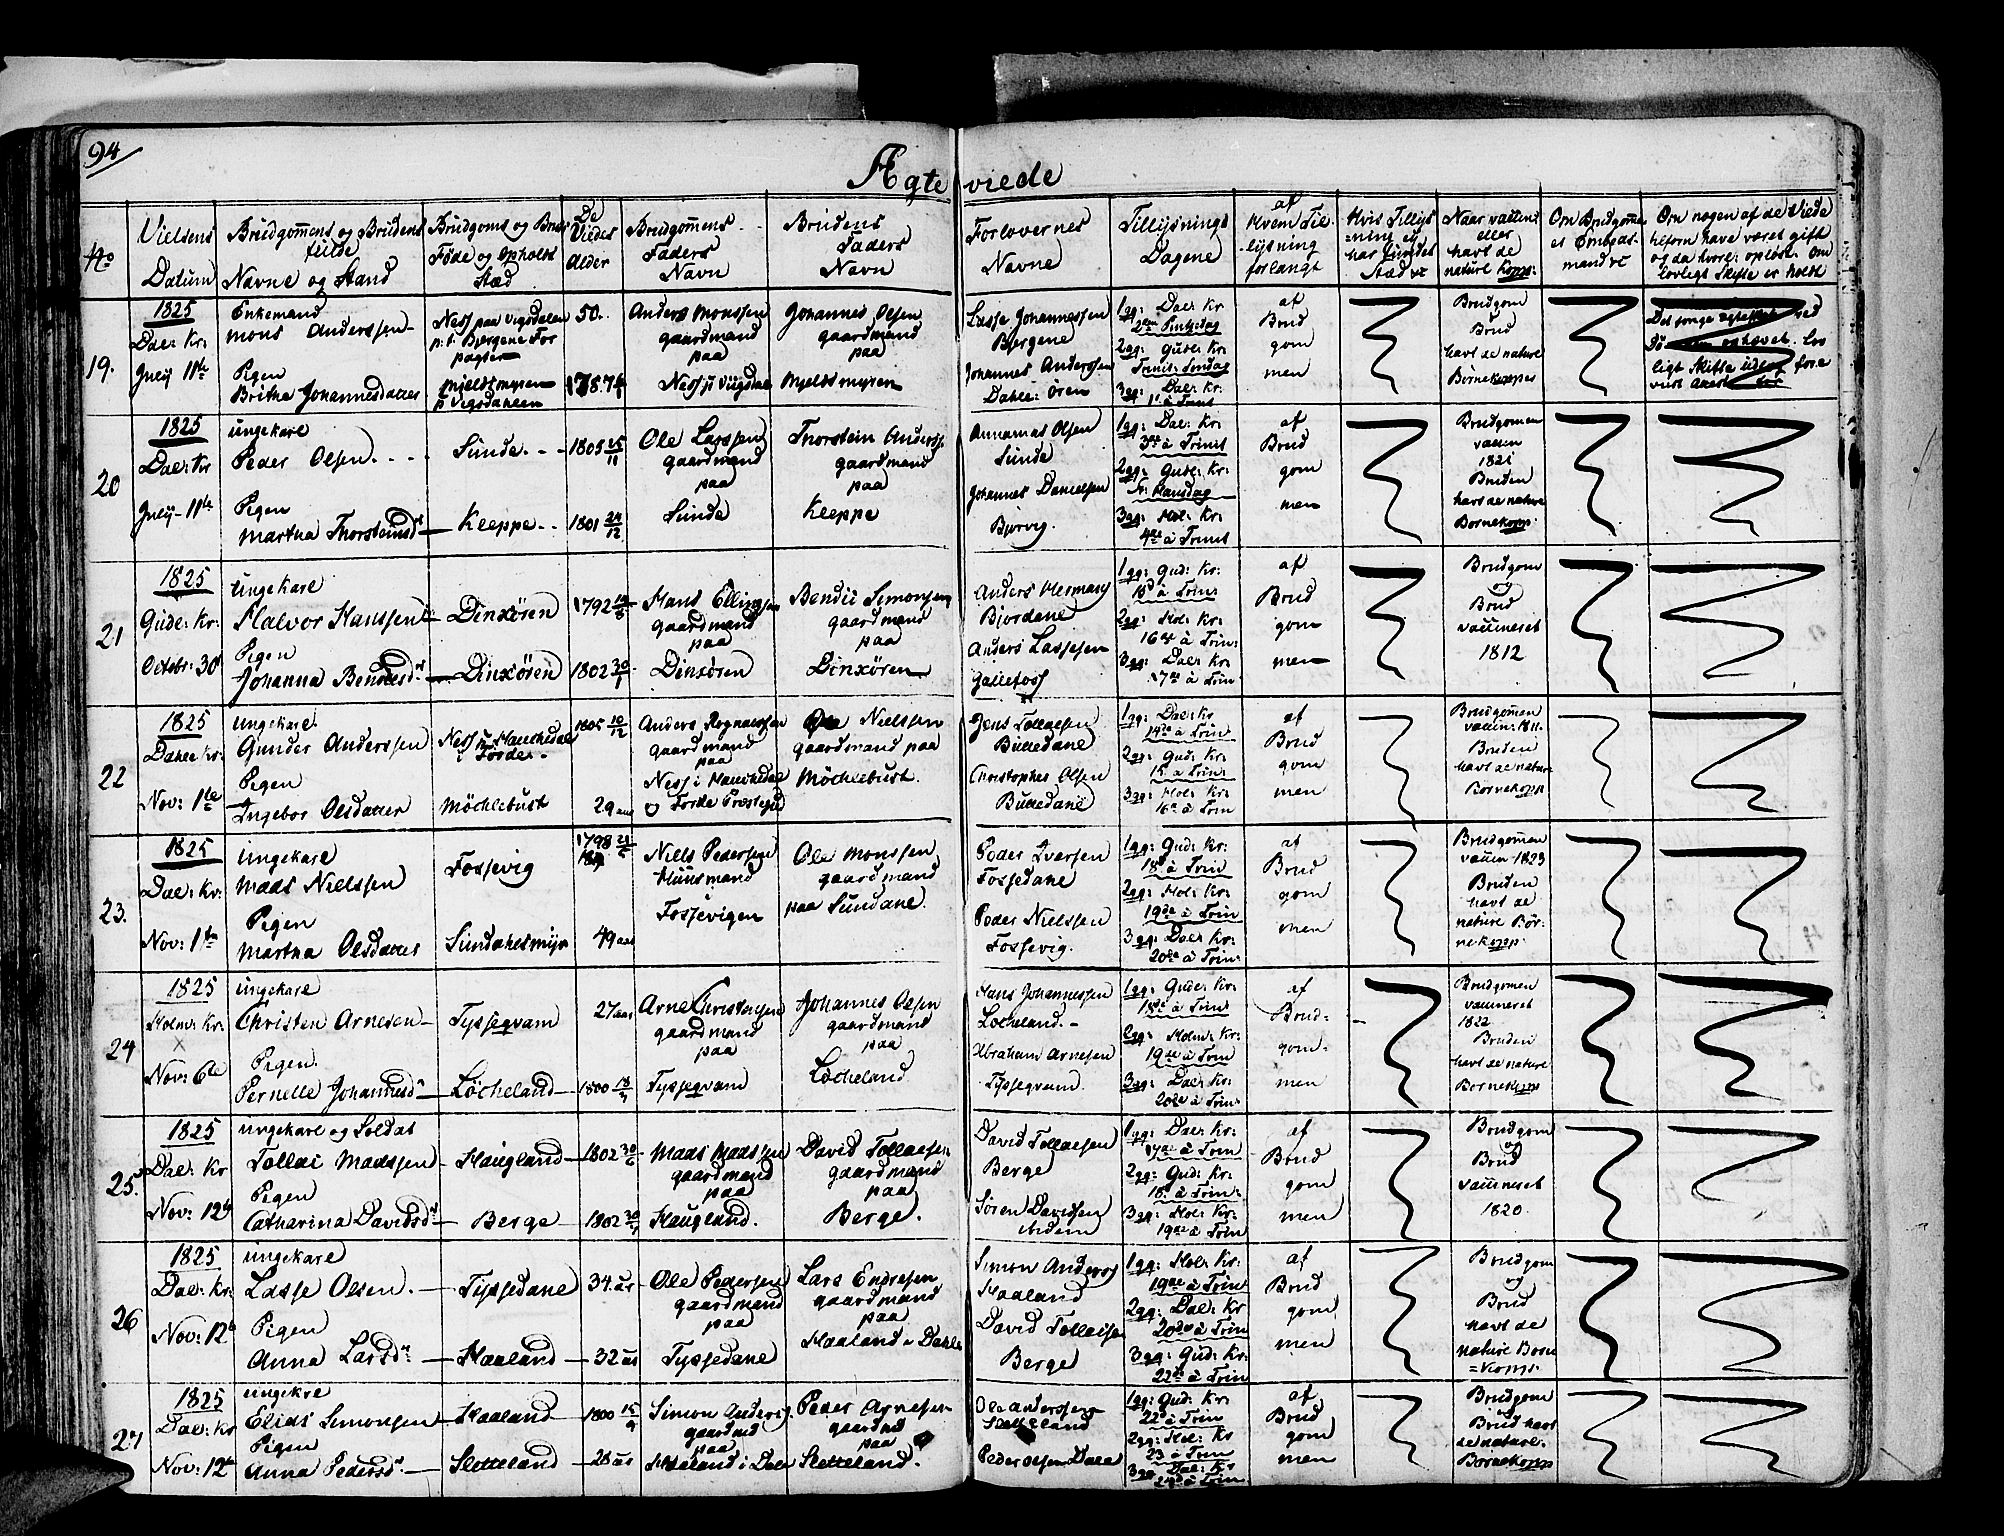 94
Ægteviede
No
Vielsens Datum
Brudgom̄ens og Brudens fulde Navne og Stand
Brudgoms og Bruds Føde og Opholds Stæd
De Viedes Alder
Brudgom̄ens Faders Navn
Brudens Faders Navn
Forlovernes Navne
Tillysnings Dagene
af Hvem Tillysning forlangt
Hvis Tillysning ei har fundet Stæd &c
Naar vaccineret eller havt de naturl. Kopp:
Om Brudgom̄en er Embedsmand &c
Om nogen af de Viede tilforn have været gift og da hvorl: opløst. Om lovligt Skifte er holdt
19.
1825
Dal: Kr:
July 11te
Enkemand
Mons Anderssen
Pigen
Britha Johannesdatter
50.
Anders Monssen
gaardmand
paa
Johannes Olsen
gaardmand
paa
Mjeldsmyren
Lasse Johannessen
Bergene
Johannes Anderssen
Dahle: Øren
1 gg: Dal: Kr:
2den Pintsdag
2 gg: Gudl: Kr:
Trinit: Søndag
3 gg: Dal: Kr:
1 à Trinit
af
Brud
gom
men
Brudgom
Brud
havt de nature
Børnekopper
20
1825
Dal: Kr
July 11te
ungekarl
Peder Olsen
Pigen
Martha Thorsteinsd
Sunde
Kleppe
1805 25/11
1801 24/12
Ole Larssen
gaardmand
paa
Sunde
Thorstein Anderss
gaardmand
paa
Kleppe
Annanias Olsen
Sunde
Johannes Danielsen
Bjørvig
1 gg: Dal: Kr:
3die à Trinit
2 gg: Gudl: Kr:
St: Hansdag
3 gg: Hol: Kr:
4de à Trinit
af
Brud
gom
men
Brudgommen
vaccin
1821
Bruden
havt de nature
Børnekopp:
21
1825
Gudl: Kr:
Octobr: 30
ungekarl
Halvor Hanssen
Pigen
Johanna Bendiksd
Dinxøren
Dinxøren
1802 30/1
Hans Ellingsen
gaardmand
paa
Dinxøren
Bendic Simonsen
gaardmand
paa
Dinxøren
Anders Hermans
Bjordane
Anders Lassesen
1 gg: Gud: Kr:
15 à Trin:
2 gg: Hol: Kr:
16de à Trin:
3 gg: Dal: Kr:
17de à Trin
af
Brud
gom
men
Brudgom
og
Brud
vaccineret
1812
22
1825
Dahle Kr:
Nov: 1te
ungekarl
Gunder Anderssen
Pigen
Ingebor Olsdatter
Møchlebust
1805 10/12
29 aar
Anders Rognaldsen
gaardmand
paa
Ole Nielssen
gaardmand paa
Møchlebust
Jens Tollaksen
Bulledane
Christopher Olsen
Bulledane
1 gg: Dal: Kr
14de à Trin
2 gg: Gud: Kr:
15 à Trin:
3 gg: Hol: Kr:
16de à Trin
af
Brud
gom
men
Brudgommen
vaccin: 1811.
Bruden
havt de nature
Børnekopp
23.
1825
Dal: Kr:
Nov: 1te
ungekarl
Mads Nielssen
Pigen
Martha Olsdatter
Fossevig
Sundahlsmyr
49 aar
Niels Pedersen
Huusmand
Fossevigen
Ole Monssen
gaardmand
paa Sundane.
Peder Iversen
Fossedane
Peder Nielssen
Fossevig.
1 gg: Gud: Kr:
18de à Trin
2 gg: Hol: Kr:
19de à Trin
3 gg: Dal: Kr:
20de à Trin:
af
Brud
gom
men
Brudgommen
vaccin 1823
Bruden
havt de
nature Bør-
nekopp
24
1825
Holm: Kr:
x
Nov: 6te
ungekarl
Christen Arnesen
Pigen
Pernelle Johannesd
Tyssegvam
Løcheland
27 aar
Arne Christensen
gaardmand
paa
Tyssegvam
Johannes Olsen
gaardmand
paa
Løcheland
Hans Johannessen
Løcheland.
Abraham Arnesen
Tyssegvam.
1 gg: Gudl: Kr:
18de à Trin
2 gg: Holm: Kr:
19de à Trin
3 gg: Dal: Kr:
20de à Trin:
af
Brud
gom
men
Brudgommen
vaccineret
1822
Bruden
havt de nature
Børnekopp
25.
1825
Dal: Kr
Nov: 12te
ungekarl og Soldat
Tollai Madssen
Pigen
Catharina Davidsd
Haugland
Berge
Mads Madssen
gaardmand
paa
Haugland.
David Tollaksen
gaardmand
paa
Berge.
David Tollaksen
Berge
Søren Davidsen
ibidem
1 gg: Dal: Kr:
17de à Trin:
2 gg: Gud: Kr:
18 à Trin:
3 gg: Hol: Kr:
19de à Trin
af
Brud
gom
men
Brudgom
og
Brud
vaccineret
1820.
26
1825
Dal: Kr:
Nov: 12te
ungekarl
Lasse Olsen
Pigen
Anna Larsd:
Tyssedane
Haaland
34 aar
32 aar
Ole Pedersen
gaardmand
paa
Tyssedane
Lars Endresen
gaardmand
paa
Haaland i Dahle
Simon Anders
Haaland
David Tollaksen
Berge
1 gg: Hol: Kr:
19de à Trin
2 gg: Dal: Kr
20de à Trin
3 gg: Gud: Kr:
22de à Trin
af
Brud
gom
men
Brudgom
og
Brud
havt de
nature Børne
=kopp:
27
1825
Dal: Kr
Nov: 12te
ungekarl
Elias Simonsen
Pigen
Anna Pedersd
Haaland
Sletteland
1800 15/9
28 aar
Simon Anders
gaardmd
paa
Haaland i Dale
Peder Arnesen
gaardmd
paa
Sletteland.
Ole Anderssen
Sletteland
Peder Olsen Dale
1 gg: Gud: Kr
22de à Trin
2 gg: Hol: Kr
23 à Trin
3 gg Dal: Kr
24de à Trin
af
Brud
gom
men
Brudgom
og
Brud havt
de nature
Børnekopp